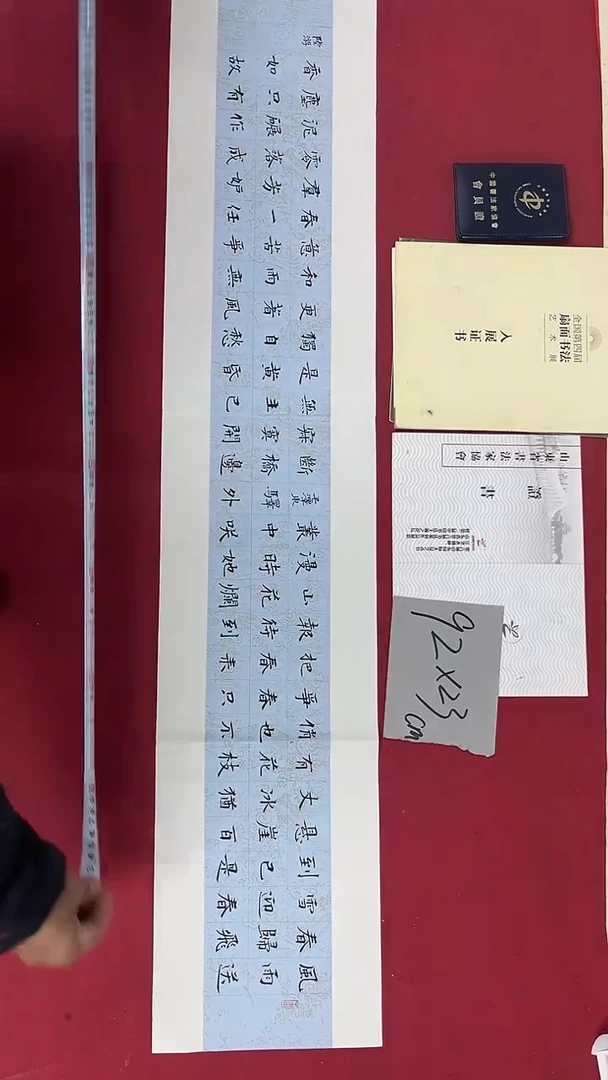 風雨送
春歸飛
雪迎春
到已是
懸崖百
丈冰猶
有花枝
俏也不
爭春只
把春來
報待到
山花爛
漫時她
叢中咲
驛外
斷橋邊
寞開
無主已
是黃昏
獨自愁
更著風
和雨無
意苦爭
春一任
群芳妒
零落成
泥碾作
塵只有
香如故
陸游
中國書法家協會
會員證
全国第四届
扇面书法
艺术展
入展证书
山東省書法家協會
證書
92x23
cm